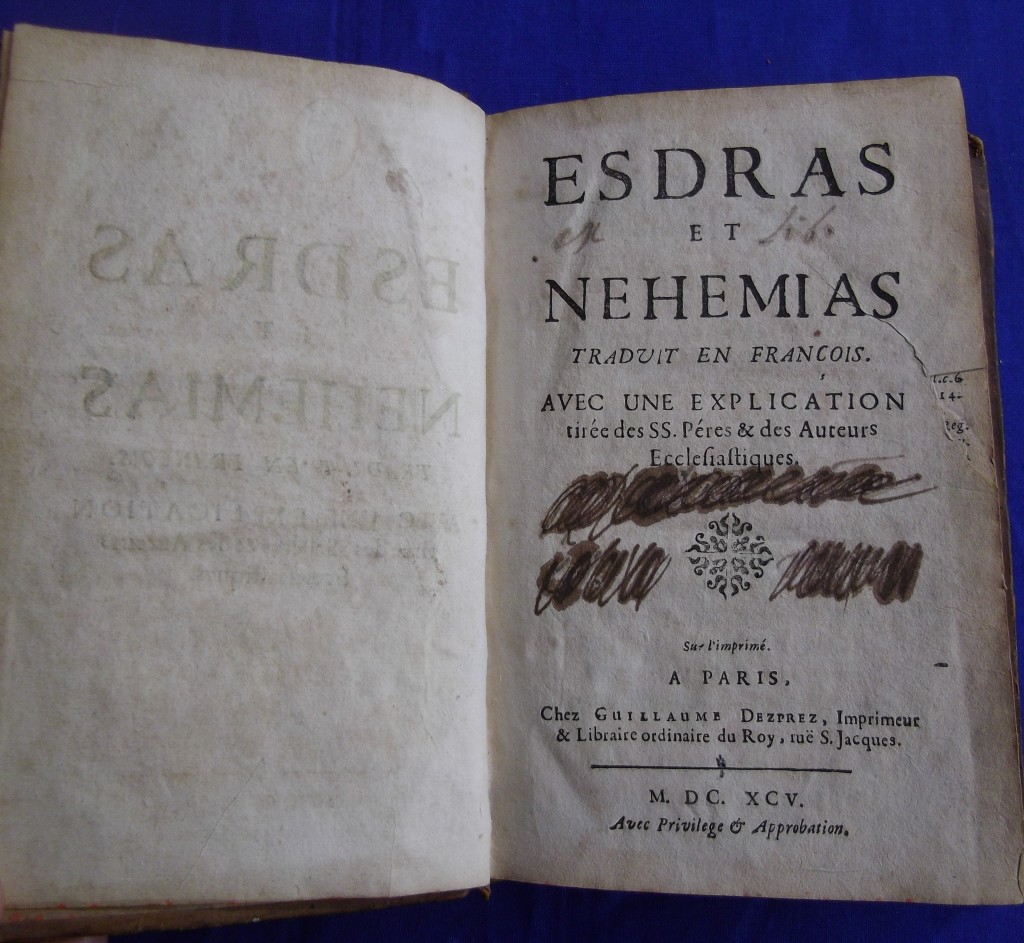 ESDRAS
ET
NEHEMIAS
TRADVIT EN FRANÇOIS.
AVEC UNE EXPLICATION
tirée des SS. Péres & des Auteurs
Ecclesiastiques.
Sur l'imprimé.
A PARIS,
Chez GUILLAUME DEZPREZ, Imprimeur
& Libraire ordinaire du Roy, ruë S. Jacques.
M. DC. XCV.
Avec Privilege & Approbation.